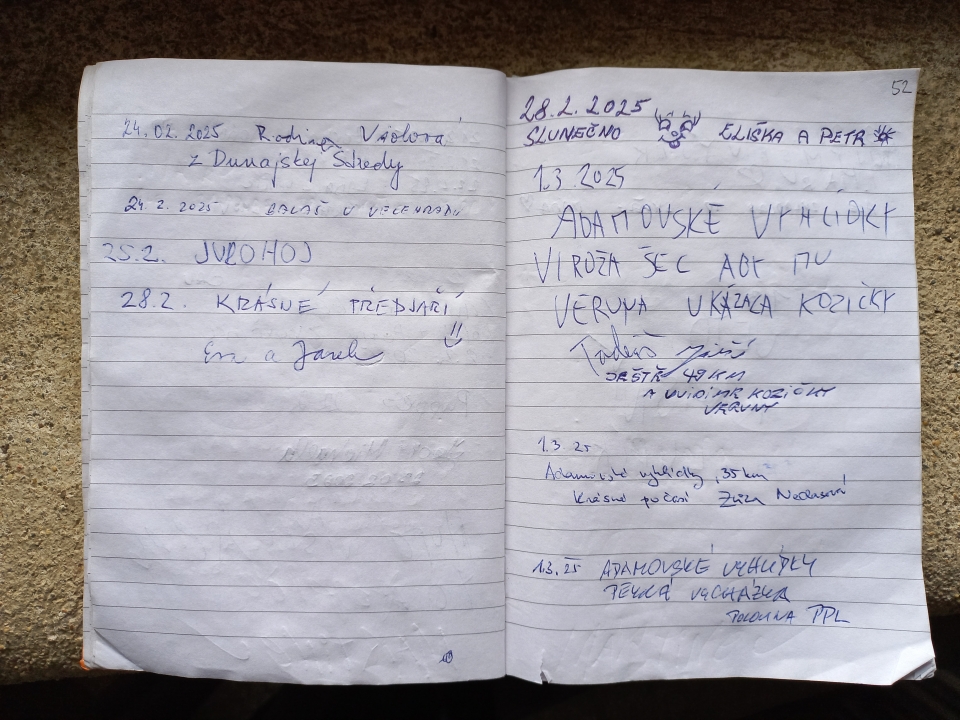 24.02.2025 Rodina Violová
z Dunajskej Stredy
24.2.2025 BALÁŠ U VELEHRADU
25.2.
28.2. KRÁSNÉ PŘEDJAŘÍ
!!
Eva a Jarek
52
28.2.2025
SLUNEČNO ELIŠKA A PETR
1.3.2025
ADAMOVSKÉ VYHLÍDKY
VERUNA UKÁZALA KOZIČKY
Tadeáš
JEŠTĚ 49KM
A UVIDÍM KOZIČKY
VERUNY
1.3.25
Adamovské vyhlídky, 35km
Krásné počasí Zůza
1.3.25 ADAMOVSKÉ VYHLÍDKY
PĚKNÁ VYCHÁZKA
PPL